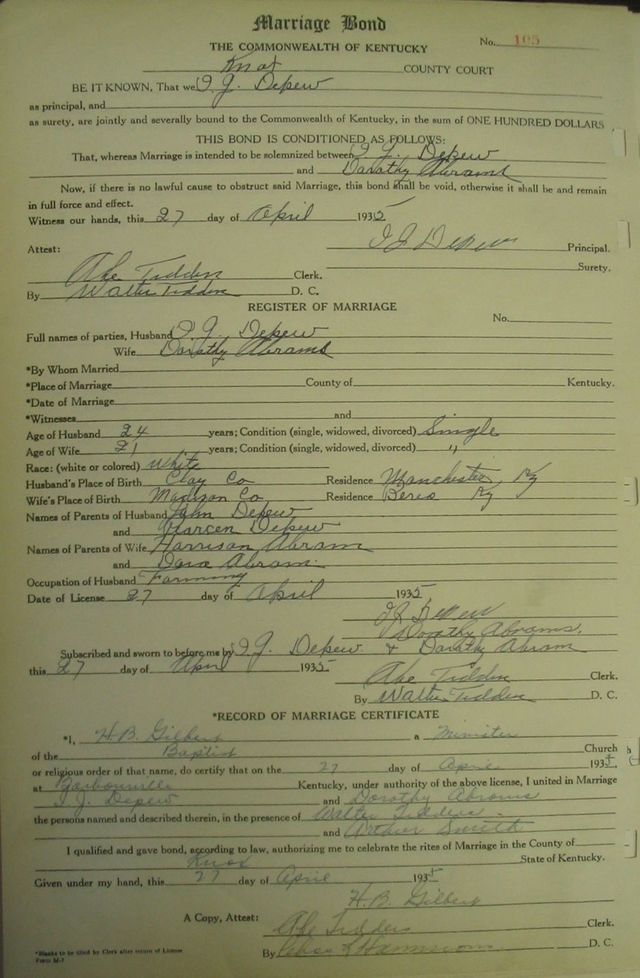 Marriage Bond
THE COMMONWEALTH OF KENTUCKY
No. 105
Knox COUNTY COURT
BE IT KNOWN, That we J. G. Depew
as principal, and
as surety, are jointly and severally bound to the Commonwealth of Kentucky, in the sum of ONE HUNDRED DOLLARS
THIS BOND IS CONDITIONED AS FOLLOWS:
That, whereas Marriage is intended to be solemnized between J. G. Depew
and Dorothy Abrams
Now, if there is no lawful cause to obstruct said Marriage, this bond shall be void, otherwise it shall be and remain
in full force and effect.
Witness our hands, this 27 day of April 1935
J G Depew Principal.
Attest:
Surety.
Abe Tidden Clerk.
By Walter Tidden D. C.
REGISTER OF MARRIAGE
No.
Full names of parties, Husband J. G. Depew
Wife Dorothy Abrams
*By Whom Married
*Place of Marriage County of Kentucky.
*Date of Marriage
*Witnesses and
Age of Husband 24 years; Condition (single, widowed, divorced) Single
Age of Wife 21 years; Condition (single, widowed, divorced) "
Race: (white or colored) White
Husband's Place of Birth Clay Co Residence Manchester, Ky
Wife's Place of Birth Madison Co Residence Berea Ky
Names of Parents of Husband John Depew
and Depew
Names of Parents of Wife Harrison Abram
and Dora Abram
Occupation of Husband Farming
Date of License 27 day of April 1935
J G Depew
Dorothy Abrams.
Subscribed and sworn to before me by J. G. Depew & Dorothy Abram
this 27 day of April 1935
Abe Tidden Clerk.
By Walter Tidden D. C.
*RECORD OF MARRIAGE CERTIFICATE
*I, H. B. Gilbert a Minister
of the Baptist Church
or religious order of that name, do certify that on the 27 day of April 1935
at Barbourville Kentucky, under authority of the above license, I united in Marriage
J. G. Depew and Dorothy Abrams
the persons named and described therein, in the presence of Walter Tidden
and Arthur Smith
I qualified and gave bond, according to law, authorizing me to celebrate the rites of Marriage in the County of
Knox State of Kentucky.
Given under my hand, this 27 day of April 1935
H. B. Gilbert
A Copy, Attest:
Abe Tidden Clerk.
By D. C.
*Blanks to be filled by Clerk after return of License
Form M-7